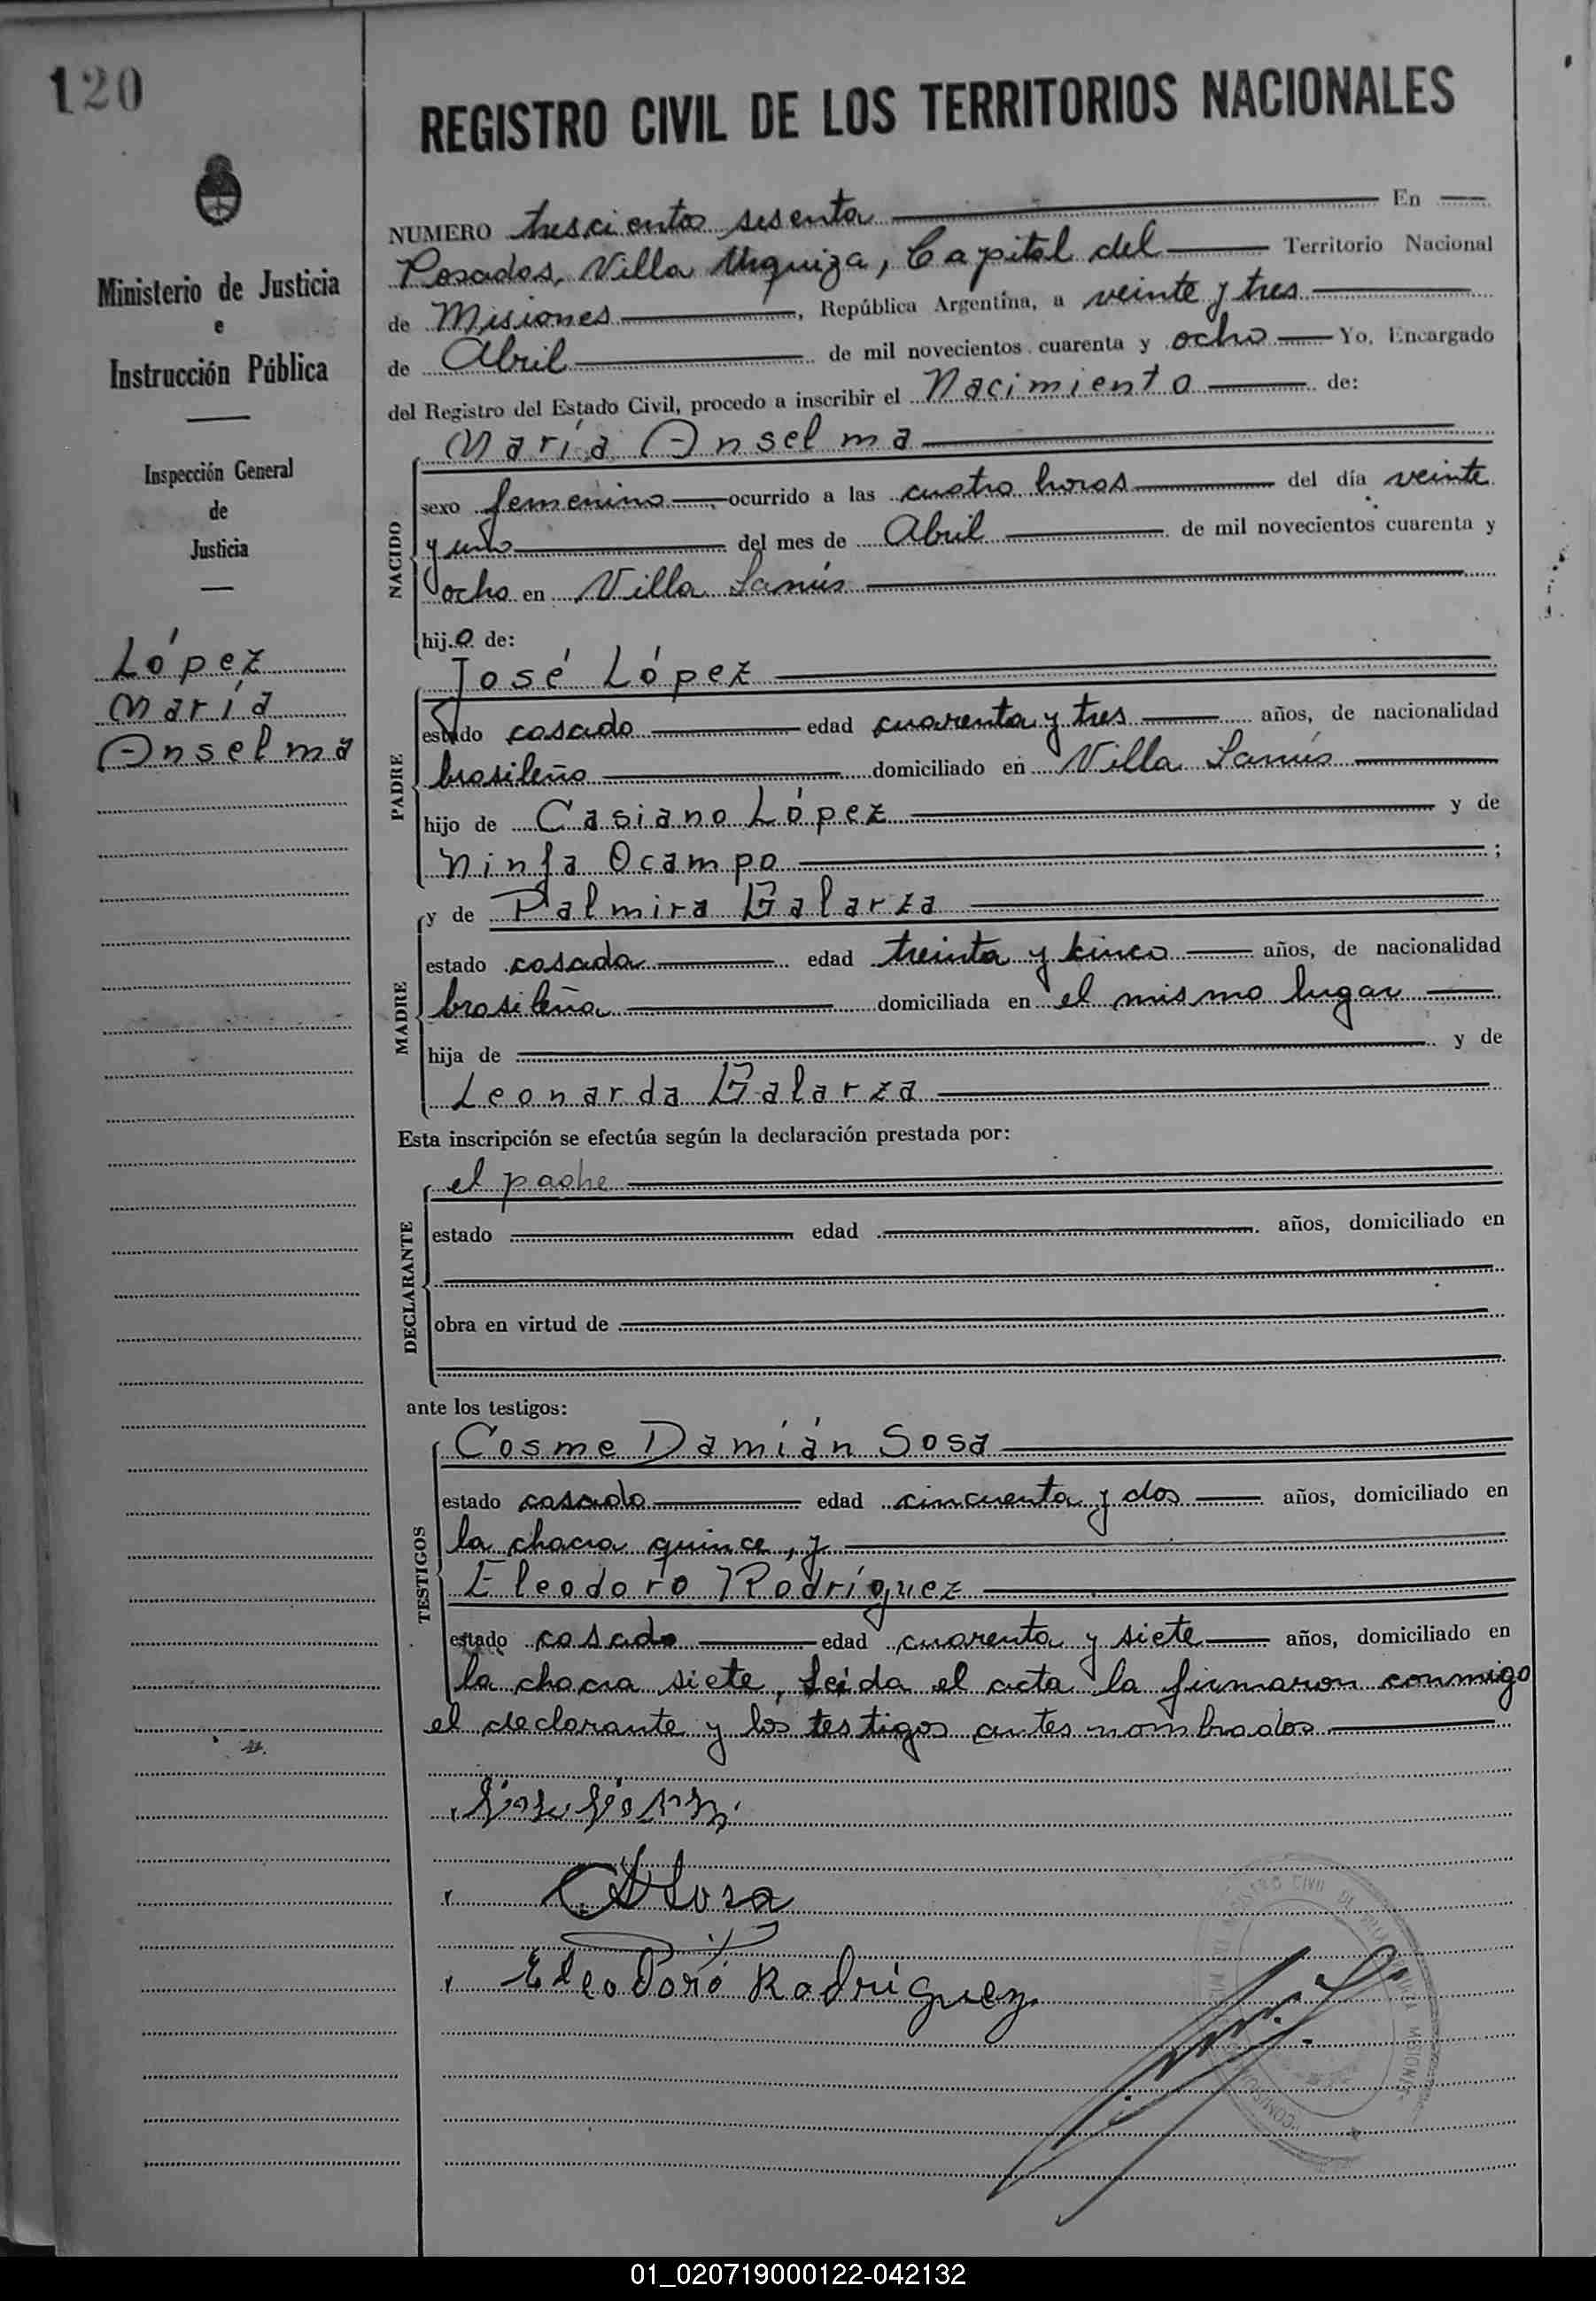 120
REGISTRO CIVIL DE LOS TERRITORIOS NACIONALES
Ministerio de Justicia
e
Instrucción Pública
Inspección General
de
Justicia
López
María
Anselma
NUMERO trescientos sesenta En
Posadas, Villa Urquiza, Capital del Territorio Nacional
de Misiones, República Argentina, a veinte y tres
de Abril de mil novecientos cuarenta y ocho Yo, Encargado
del Registro del Estado Civil, procedo a inscribir el Nacimiento de:
NACIDO
María Anselma
sexo femenino ocurrido a las cuatro horas del día veinte
y uno del mes de Abril de mil novecientos cuarenta y
ocho en Villa Lanús
hija de:
PADRE
José López
estado casado edad cuarenta y tres años, de nacionalidad
brasileño domiciliado en Villa Lanús
hijo de Casiano López y de
Ninfa Ocampo ;
MADRE
y de Palmira Galarza
estado casada edad treinta y cinco años, de nacionalidad
brasileña domiciliada en el mismo lugar
hija de y de
Leonarda Galarza
Esta inscripción se efectúa según la declaración prestada por:
DECLARANTE
el padre
estado edad años, domiciliado en
obra en virtud de
ante los testigos:
TESTIGOS
Cosme Damián Sosa
estado casado edad cincuenta y dos años, domiciliado en
la chacra quince, y
Eleodoro Rodríguez
estado casado edad cuarenta y siete años, domiciliado en
la chacra siete, leída el acta la firmaron conmigo
el declarante y los testigos antes nombrados
CDSosa
Eleodoro Rodriguez
01_020719000122-042132